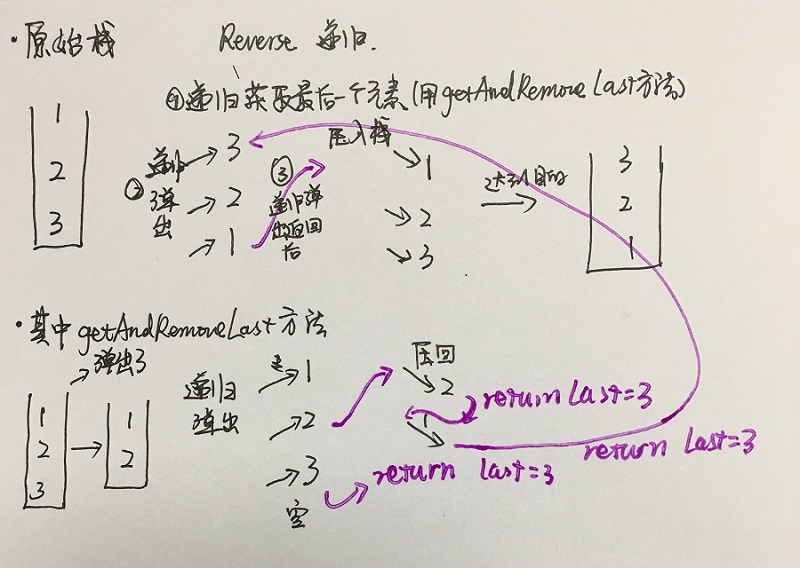 ·原始栈
Reverse 递归.
①递归获取最后一个元素(用getAndRemoveLast方法)
1
2
3
②
递归
弹
出
3
2
1
③
递归弹
出返回
后
压入栈
1
2
3
达到目的
3
2
1
·其中getAndRemoveLast方法
弹出3
1
2
3
1
2
递归
弹出
1
2
3
空
压回
2
1
return last=3
return last=3
return last=3